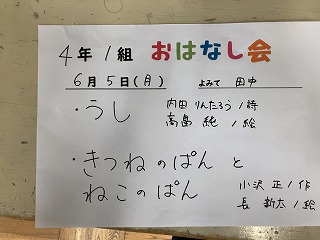 4年1組 おはなし会
6月5日(月) よみて 田中
・うし 内田りんたろう/詩
高畠 純/絵
・きつねのぱん と
ねこのぱん 小沢 正/作
長 新太/絵